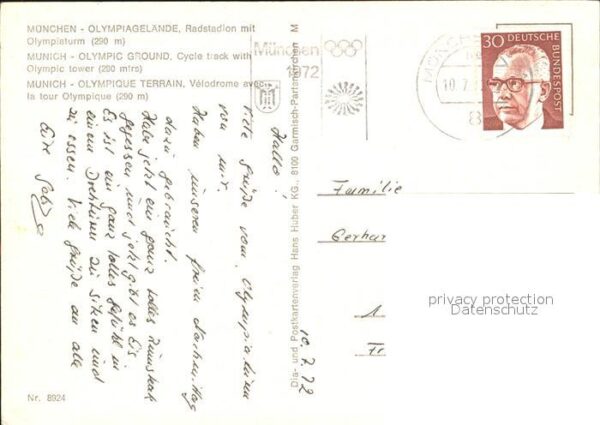 MÜNCHEN - OLYMPIAGELÄNDE, Radstadion mit
Olympiaturm (290 m)
MUNICH - OLYMPIC GROUND, Cycle track with
Olympic tower (290 mtrs)
MUNICH - OLYMPIQUE TERRAIN, Vélodrome avec
la tour Olympique (290 m)
München
1972
30 DEUTSCHE BUNDESPOST
10.7.
8
Hallo!
Viele Grüße vom Olympiaturm
von mir.
Haben unseren freien Nachmittag
dazu gebraucht.
Habe jetzt ein ganz tolles
gegessen und jetzt gibt es Eis.
Es ist ein ganz tolles Gefühl in
einem Drehturm zu sitzen und
zu essen. Viele Grüße an alle
Eure
10.7.72
Dia- und Postkartenverlag Hans Huber KG., 8100 Garmisch-Partenkirchen M
Familie
Gerhar
privacy protection
Datenschutz
Nr. 8924